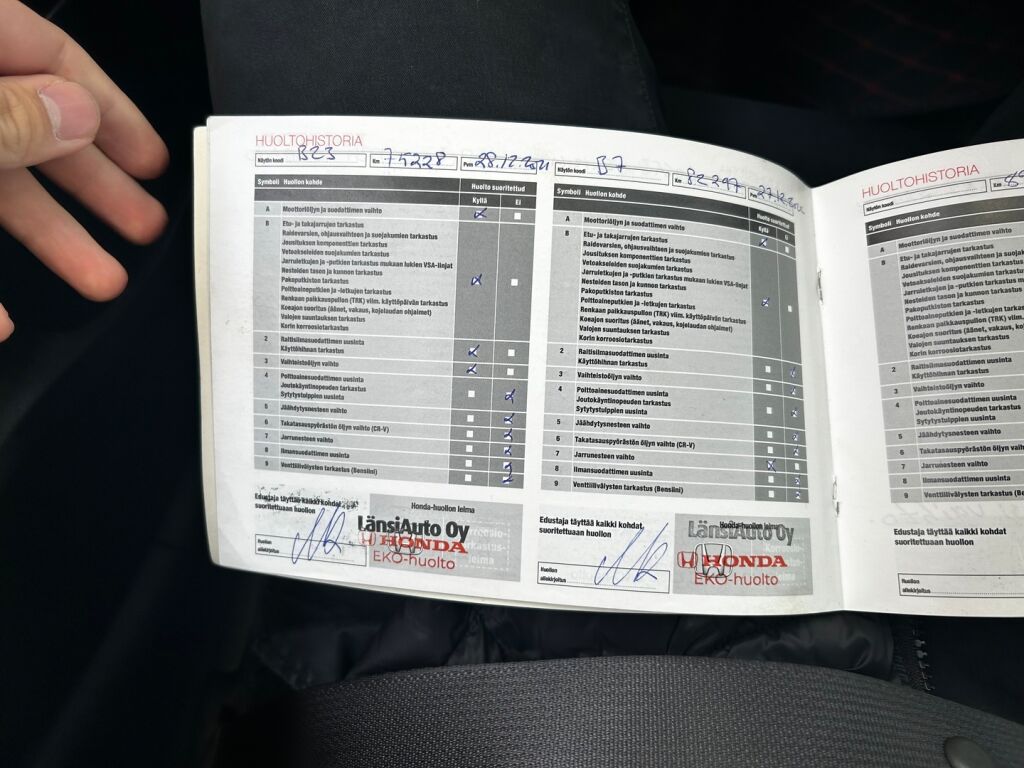 HUOLTOHISTORIA
Näytön koodi B23 Km 75228 Pvm 28.12.2021
Symboli Huollon kohde Huolto suoritettud
Kyllä Ei
A Moottoriöljyn ja suodattimen vaihto
B Etu- ja takajarrujen tarkastus
Raidevarsien, ohjausvaihteen ja suojakumien tarkastus
Jousituksen komponenttien tarkastus
Vetoakseleiden suojakumien tarkastus
Jarruletkujen ja -putkien tarkastus mukaan lukien VSA-linjat
Nesteiden tason ja kunnon tarkastus
Pakoputkiston tarkastus
Polttoaineputkien ja -letkujen tarkastus
Renkaan paikkauspullon (TRK) viim. käyttöpäivän tarkastus
Koeajon suoritus (äänet, vakaus, kojelaudan ohjaimet)
Valojen suuntauksen tarkastus
Korin korroosiotarkastus
2 Raitisilmasuodattimen uusinta
Käyttöhihnan tarkastus
3 Vaihteistoöljyn vaihto
4 Polttoainesuodattimen uusinta
Joutokäyntinopeuden tarkastus
Sytytystulppien uusinta
5 Jäähdytysnesteen vaihto
6 Takatasauspyörästön öljyn vaihto (CR-V)
7 Jarrunesteen vaihto
8 Ilmansuodattimen uusinta
9 Venttiilivälysten tarkastus (Bensiini)
Edustaja täyttää kaikki kohdat
suoritettuaan huollon
Huollon
allekirjoitus
Honda-huollon leima
LänsiAuto Oy
HONDA
EKO-huolto
Näytön koodi B7 Km 82297 Pvm
Symboli Huollon kohde Huolto suoritettud
Kyllä Ei
A Moottoriöljyn ja suodattimen vaihto
B Etu- ja takajarrujen tarkastus
Raidevarsien, ohjausvaihteen ja suojakumien tarkastus
Jousituksen komponenttien tarkastus
Vetoakseleiden suojakumien tarkastus
Jarruletkujen ja -putkien tarkastus mukaan lukien VSA-linjat
Nesteiden tason ja kunnon tarkastus
Pakoputkiston tarkastus
Polttoaineputkien ja -letkujen tarkastus
Renkaan paikkauspullon (TRK) viim. käyttöpäivän tarkastus
Koeajon suoritus (äänet, vakaus, kojelaudan ohjaimet)
Valojen suuntauksen tarkastus
Korin korroosiotarkastus
2 Raitisilmasuodattimen uusinta
Käyttöhihnan tarkastus
3 Vaihteistoöljyn vaihto
4 Polttoainesuodattimen uusinta
Joutokäyntinopeuden tarkastus
Sytytystulppien uusinta
5 Jäähdytysnesteen vaihto
6 Takatasauspyörästön öljyn vaihto (CR-V)
7 Jarrunesteen vaihto
8 Ilmansuodattimen uusinta
9 Venttiilivälysten tarkastus (Bensiini)
Edustaja täyttää kaikki kohdat
suoritettuaan huollon
Huollon
allekirjoitus
Honda-huollon leima
LänsiAuto Oy
HONDA
EKO-huolto
HUOLTOHISTORIA
Näytön koodi Km
Symboli Huollon kohde
A Moottoriöljyn ja suodattimen vaihto
B Etu- ja takajarrujen tarkastus
Raidevarsien, ohjausvaihteen ja
Jousituksen komponenttien tarkastus
Vetoakseleiden suojakumien tarkastus
Jarruletkujen ja -putkien tarkastus
Nesteiden tason ja kunnon tarkastus
Pakoputkiston tarkastus
Polttoaineputkien ja -letkujen
Renkaan paikkauspullon (TRK)
Koeajon suoritus (äänet, vakaus,
Valojen suuntauksen tarkastus
Korin korroosiotarkastus
2 Raitisilmasuodattimen uusinta
Käyttöhihnan tarkastus
3 Vaihteistoöljyn vaihto
4 Polttoainesuodattimen uusinta
Joutokäyntinopeuden tarkastus
Sytytystulppien uusinta
5 Jäähdytysnesteen vaihto
6 Takatasauspyörästön öljyn
7 Jarrunesteen vaihto
8 Ilmansuodattimen uusinta
9 Venttiilivälysten tarkastus
Edustaja täyttää kaikki kohdat
suoritettuaan huollon
Huollon
allekirjoitus